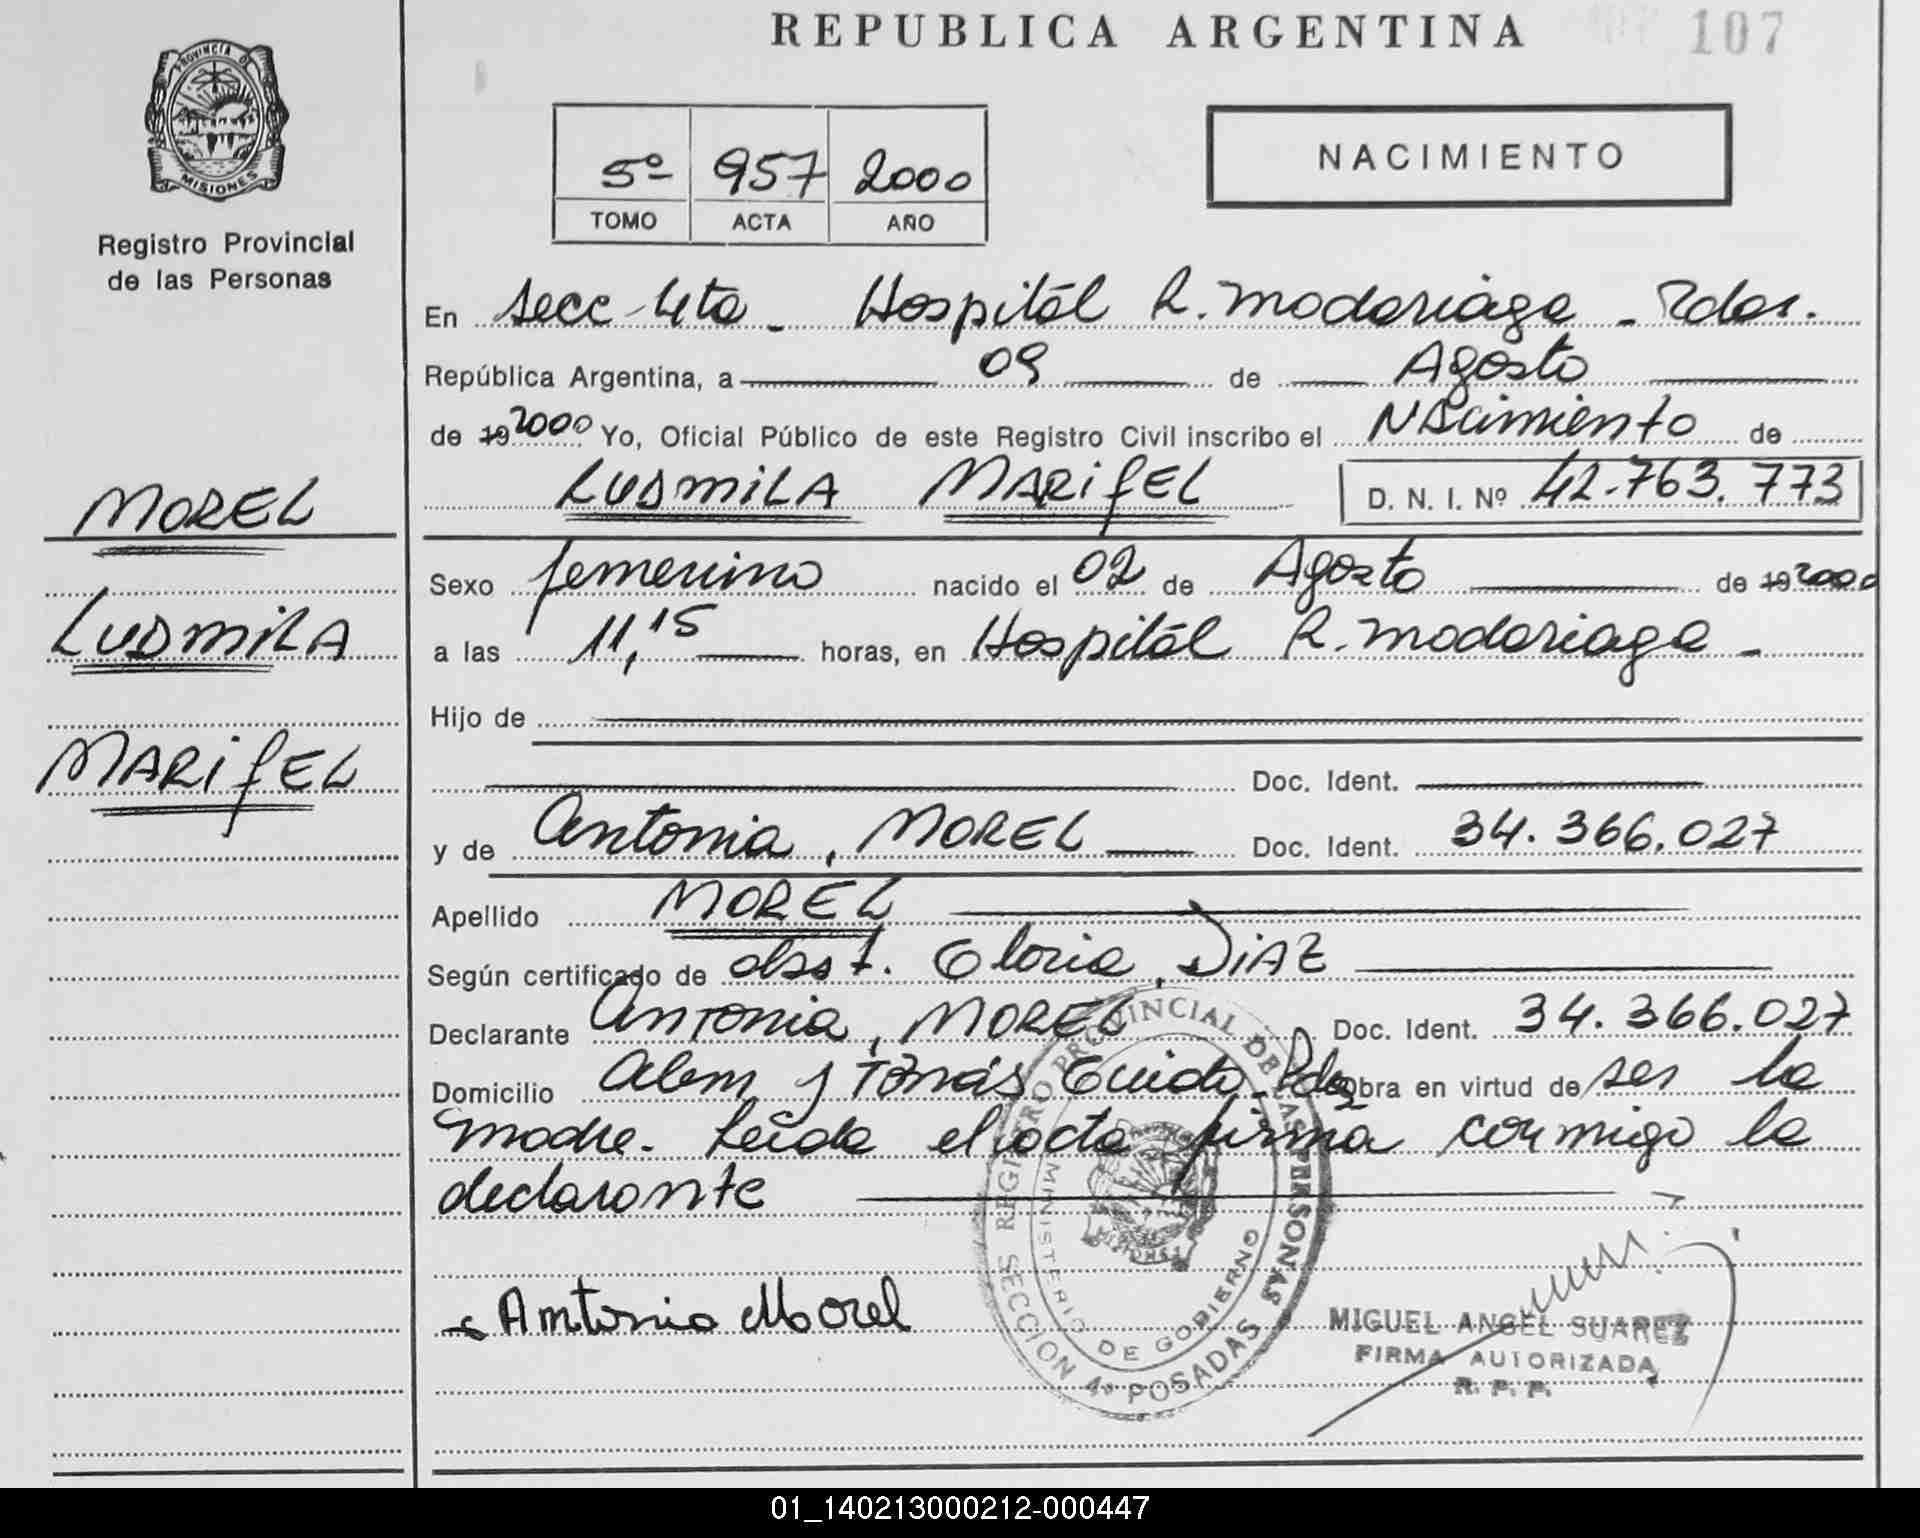 REPUBLICA ARGENTINA
107
PROVINCIA DE
MISIONES
Registro Provincial
de las Personas
5º 957 2000
TOMO ACTA AÑO
NACIMIENTO
En Secc 4ta - Hospitál R. Madariaga - Pdas.
República Argentina, a 09 de Agosto
de 19 2000 Yo, Oficial Público de este Registro Civil inscribo el Nacimiento de
LUDMILA MARIFEL D. N. I. Nº 42.763.773
MOREL
LUDMILA
MARIFEL
Sexo femenino nacido el 02 de Agosto de 19 2000
a las 11,15 horas, en Hospitál R. Madariaga -
Hijo de
Doc. Ident.
y de Antonia, MOREL Doc. Ident. 34.366.027
Apellido MOREL
Según certificado de obst. Gloria, DIAZ
Declarante Antonia, MOREL Doc. Ident. 34.366.027
Domicilio Alem y Tomás Guido Pdas Obra en virtud de ser la
madre. Leida el acta firma conmigo la
declarante
Antonia Morel
REGISTRO PROVINCIAL DE LAS PERSONAS
MINISTERIO DE GOBIERNO
MISIONES
SECCION 4ª POSADAS
MIGUEL ANGEL SUAREZ
FIRMA AUTORIZADA
R. P. P.
01_140213000212-000447